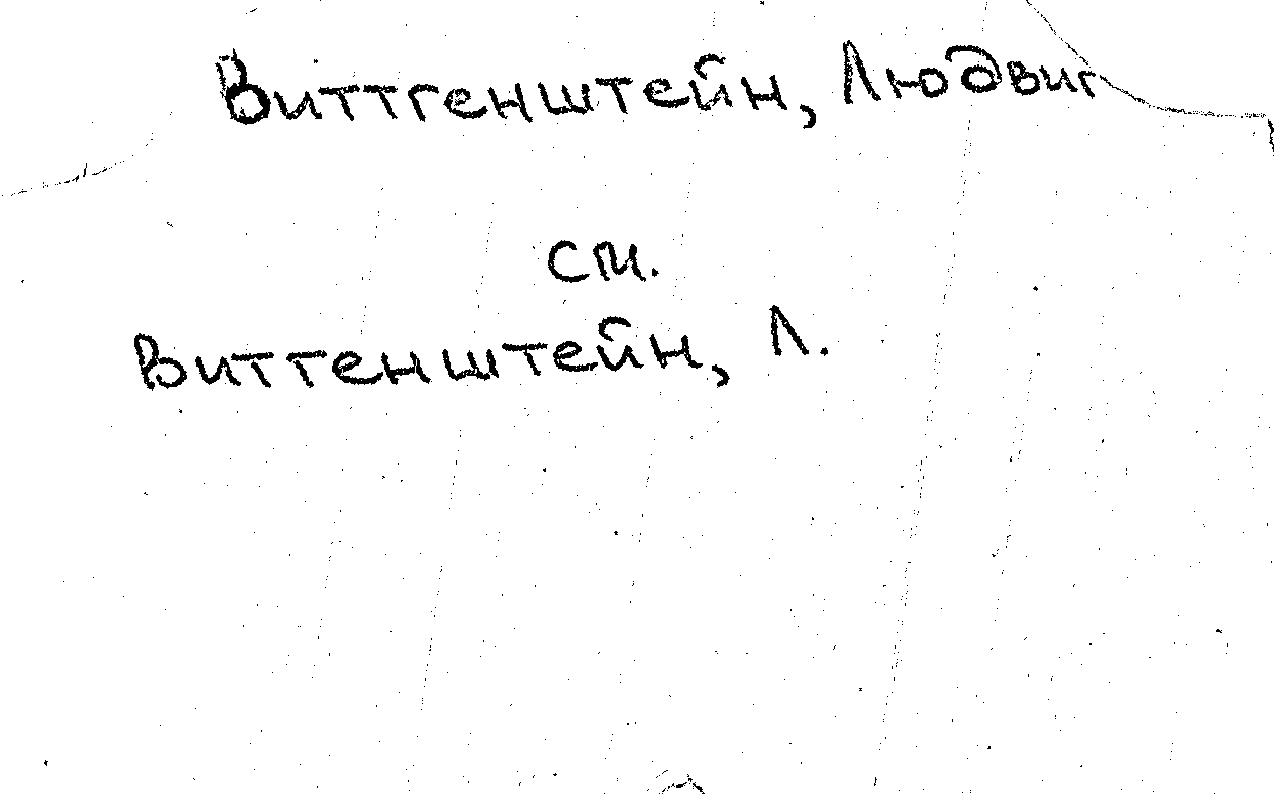 Виттгенштейн, Людвиг
см.
Виттенштейн, Л.